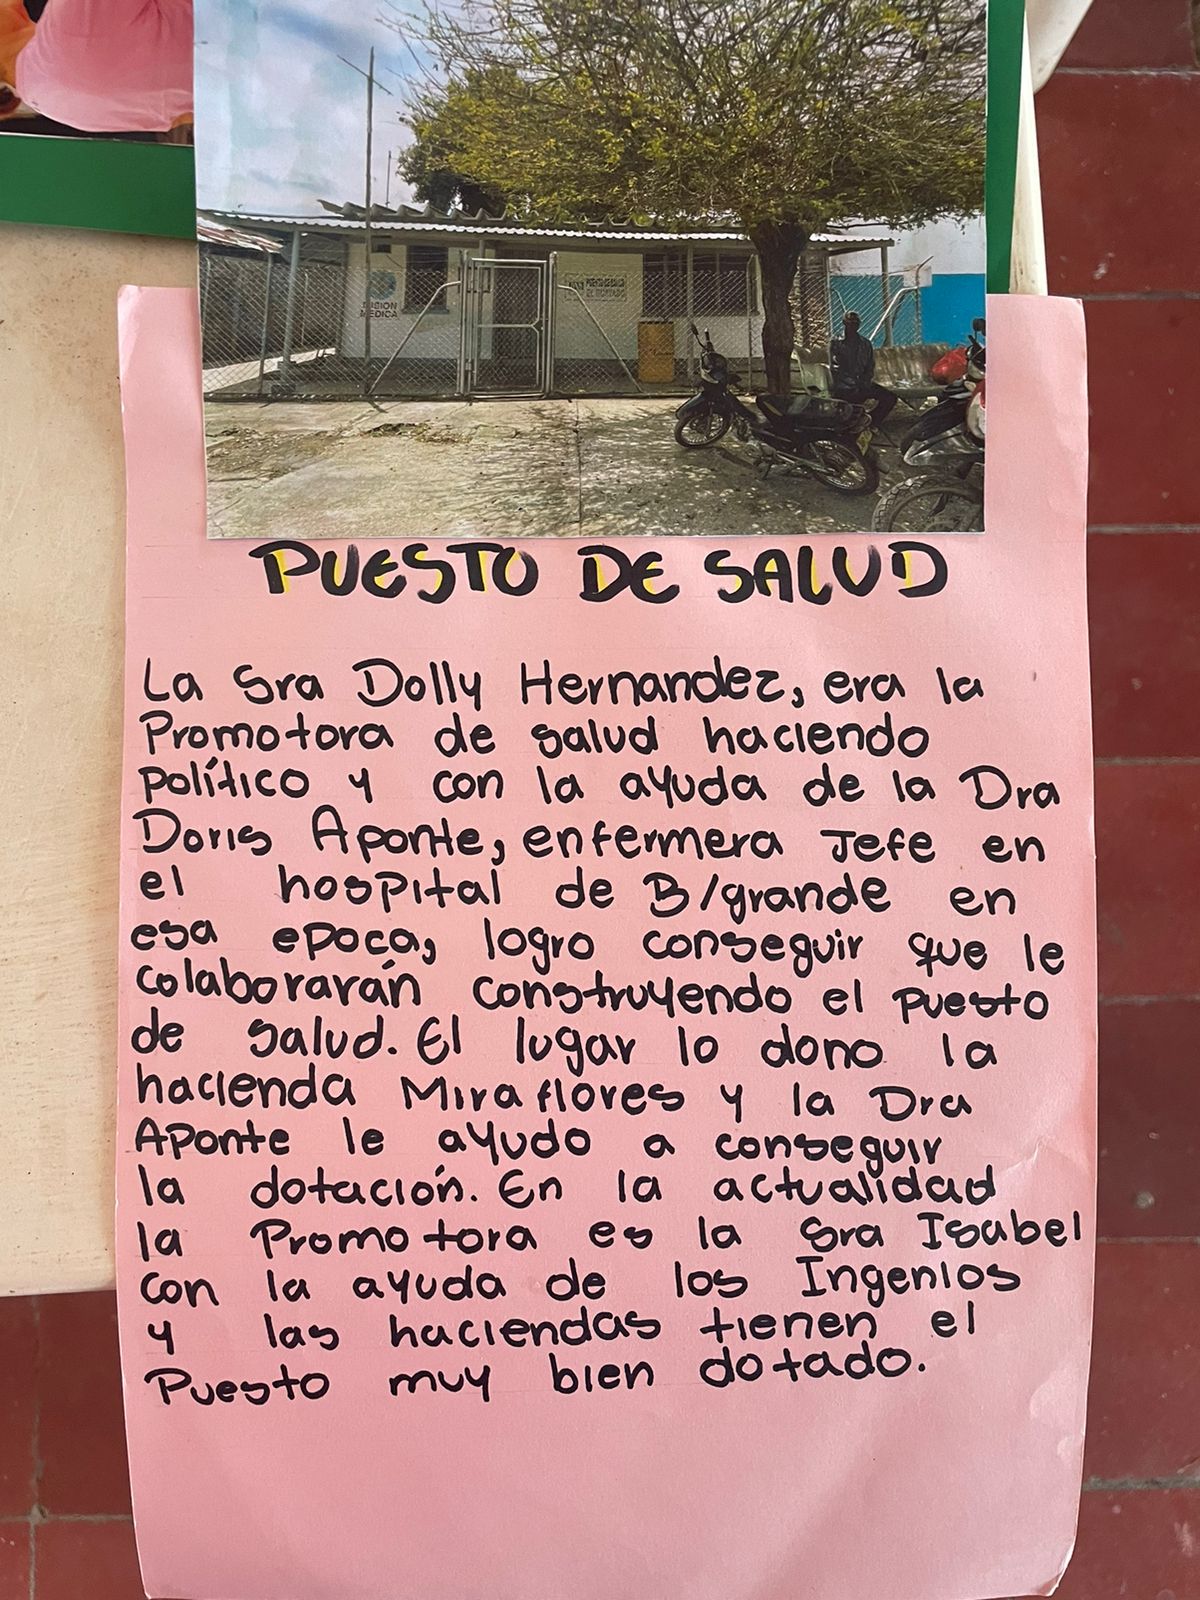 MISION
MEDICA
PUESTO DE SALUD
PUESTO DE SALUD
La Sra Dolly Hernandez, era la
Promotora de salud haciendo
político y con la ayuda de la Dra
Doris Aponte, enfermera Jefe en
el hospital de B/grande en
esa epoca, logro conseguir que le
colaborarán construyendo el puesto
de salud. El lugar lo dono la
hacienda Miraflores y la Dra
Aponte le ayudo a conseguir
la dotación. En la actualidad
la Promotora es la Sra Isabel
con la ayuda de los Ingenios
y las haciendas tienen el
Puesto muy bien dotado.